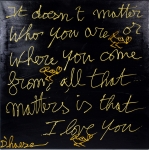 It doesn't matter
who you are or
where you come
from, all that
matters is that
I love you